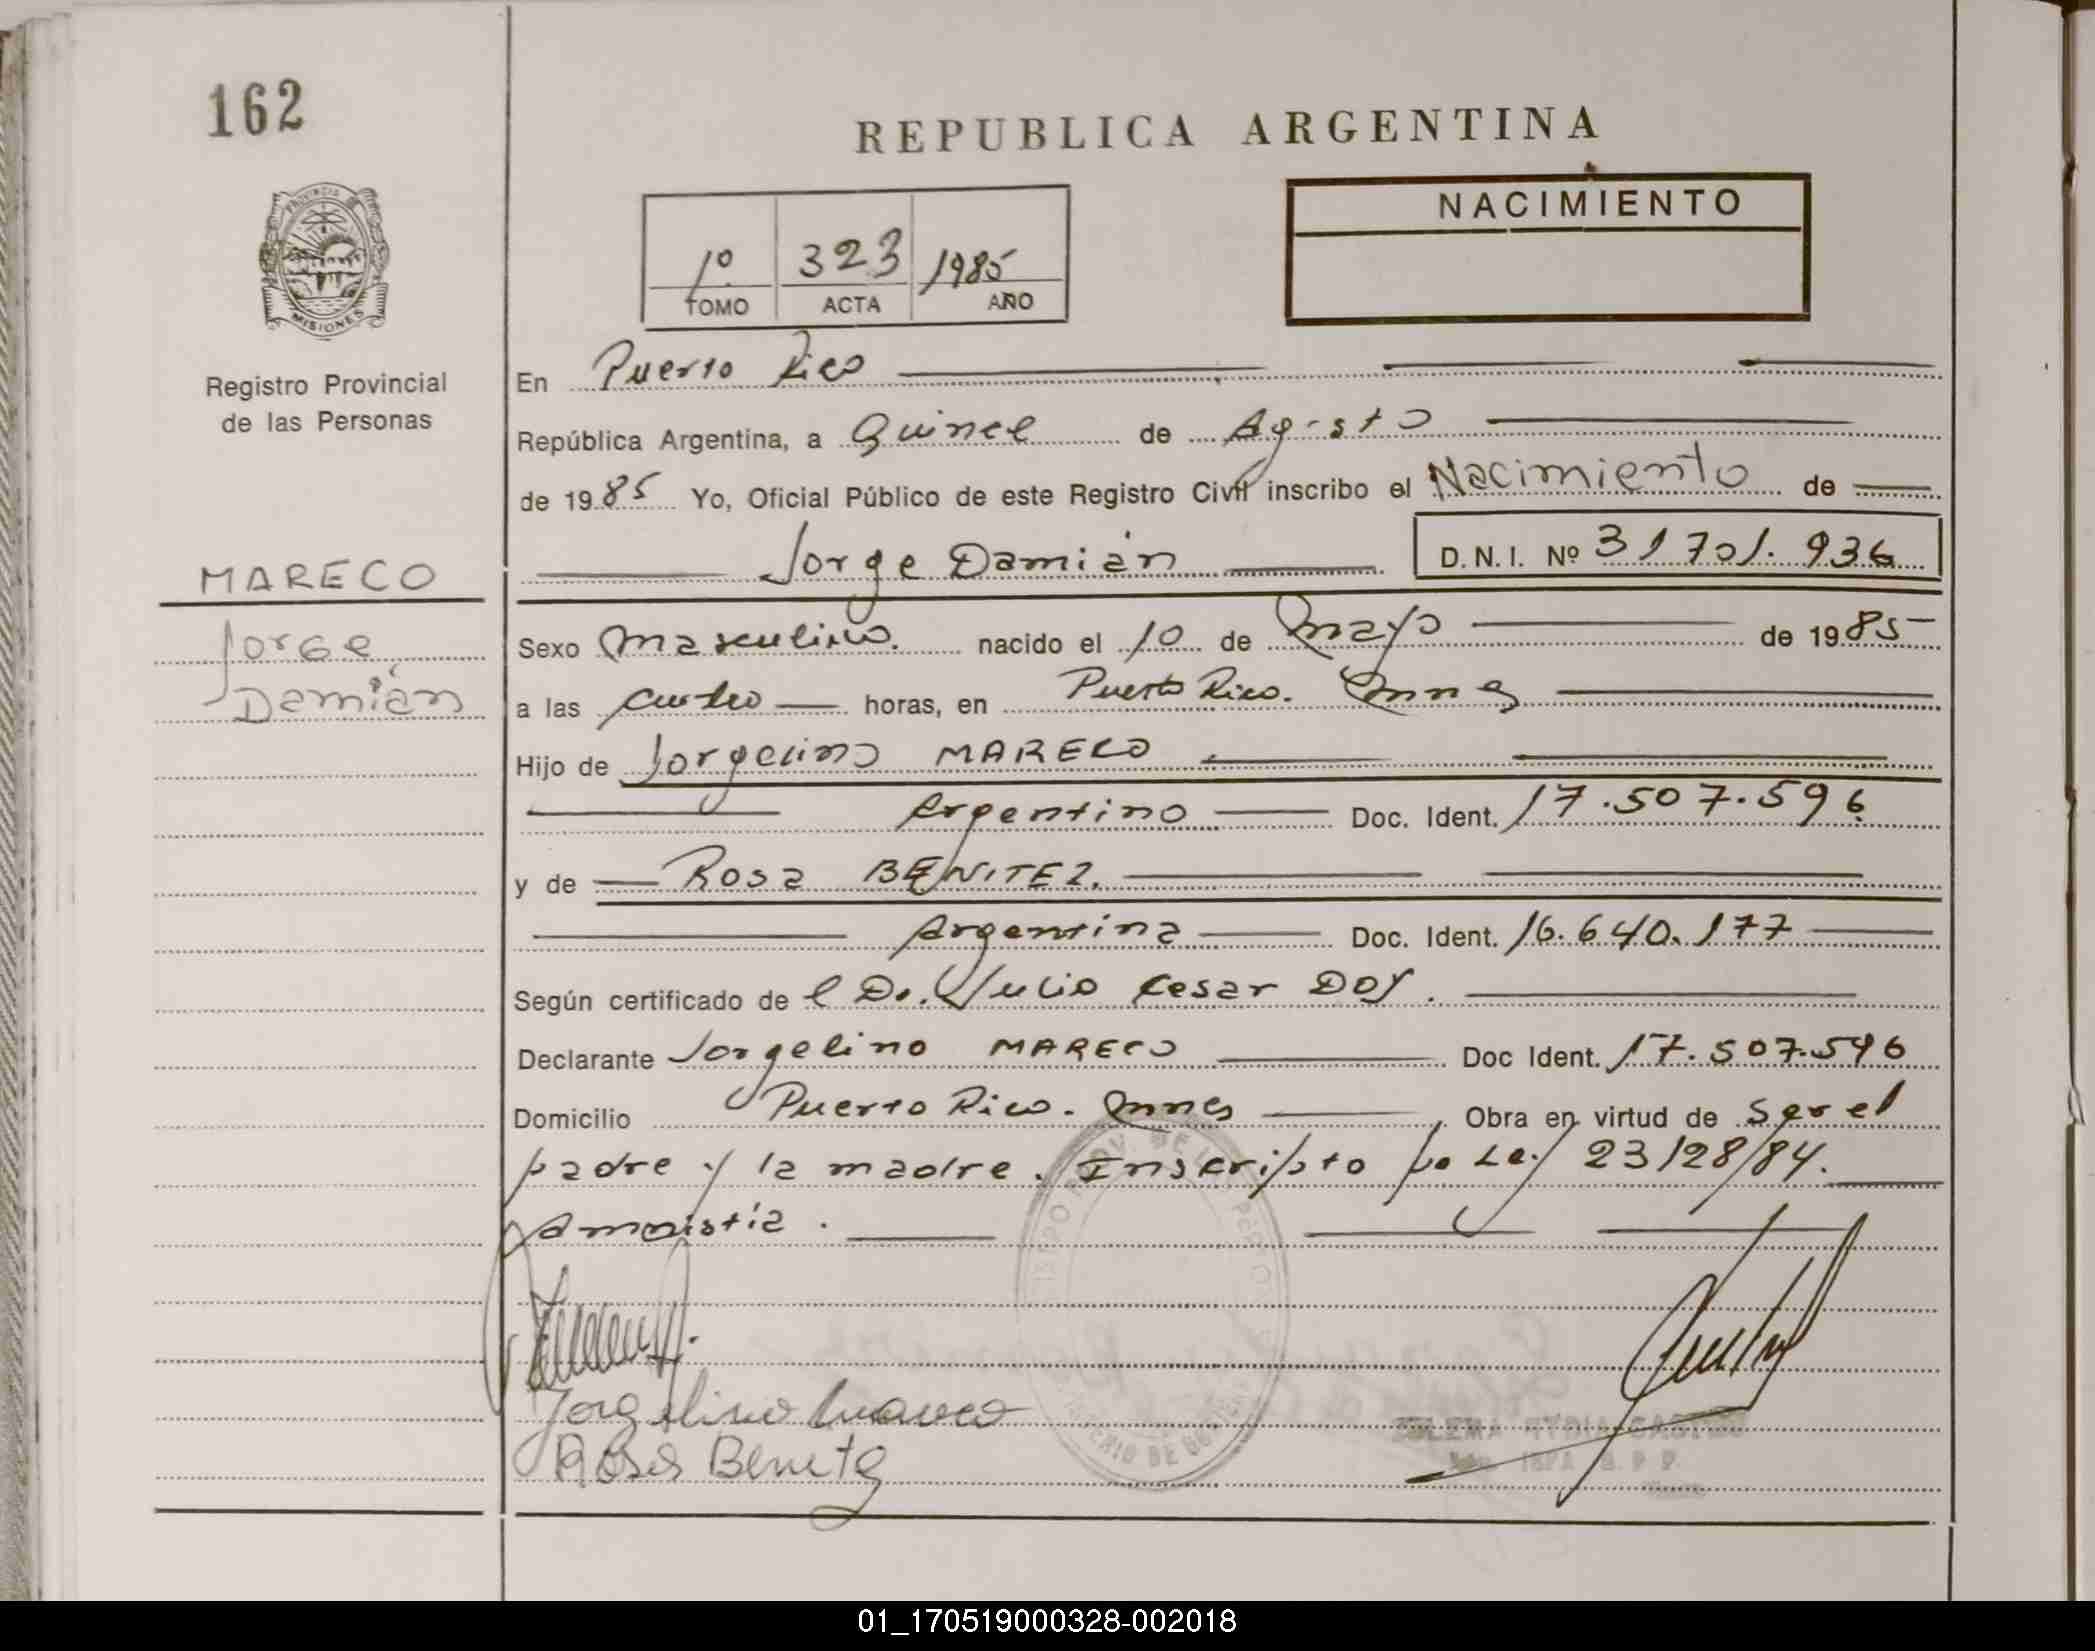 162
REPUBLICA ARGENTINA
PROVINCIA DE
MISIONES
Registro Provincial
de las Personas
1º 323 1985
TOMO ACTA AÑO
NACIMIENTO
En Puerto Rico
República Argentina, a Quince de Agosto
de 1985 Yo, Oficial Público de este Registro Civil inscribo el Nacimiento de
Jorge Damián D.N.I. Nº 31701.936
MARECO
Jorge
Damián
Sexo masculino. nacido el 10 de mayo de 1985
a las cuatro horas, en Puerto Rico. Mnes
Hijo de Jorgelino MARECO
Argentino Doc. Ident. 17.507.596
y de Rosa BENITEZ.
Argentina Doc. Ident. 16.640.177
Según certificado de el Dr. Julio Cesar DOY.
Declarante Jorgelino MARECO Doc Ident. 17.507.596
Domicilio Puerto Rico. Mnes Obra en virtud de ser el
padre y la madre. Inscripto po Ley 23128/84.
Amnistía.
Jorgelino Mareco
Rosa Benitez
01_170519000328-002018